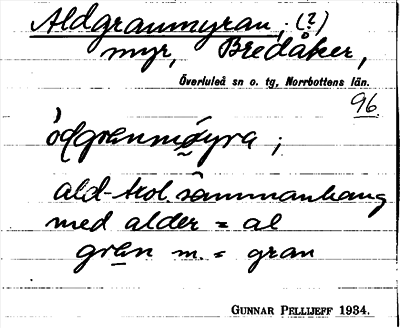 Aldgranmyran, (?)
myr, Bredåker,
Överluleå sn o. tg, Norrbottens län.
96.
ald- trol. sammanhang
med alder = al
gran m. = gran
GUNNAR PELLIJEFF 1934.